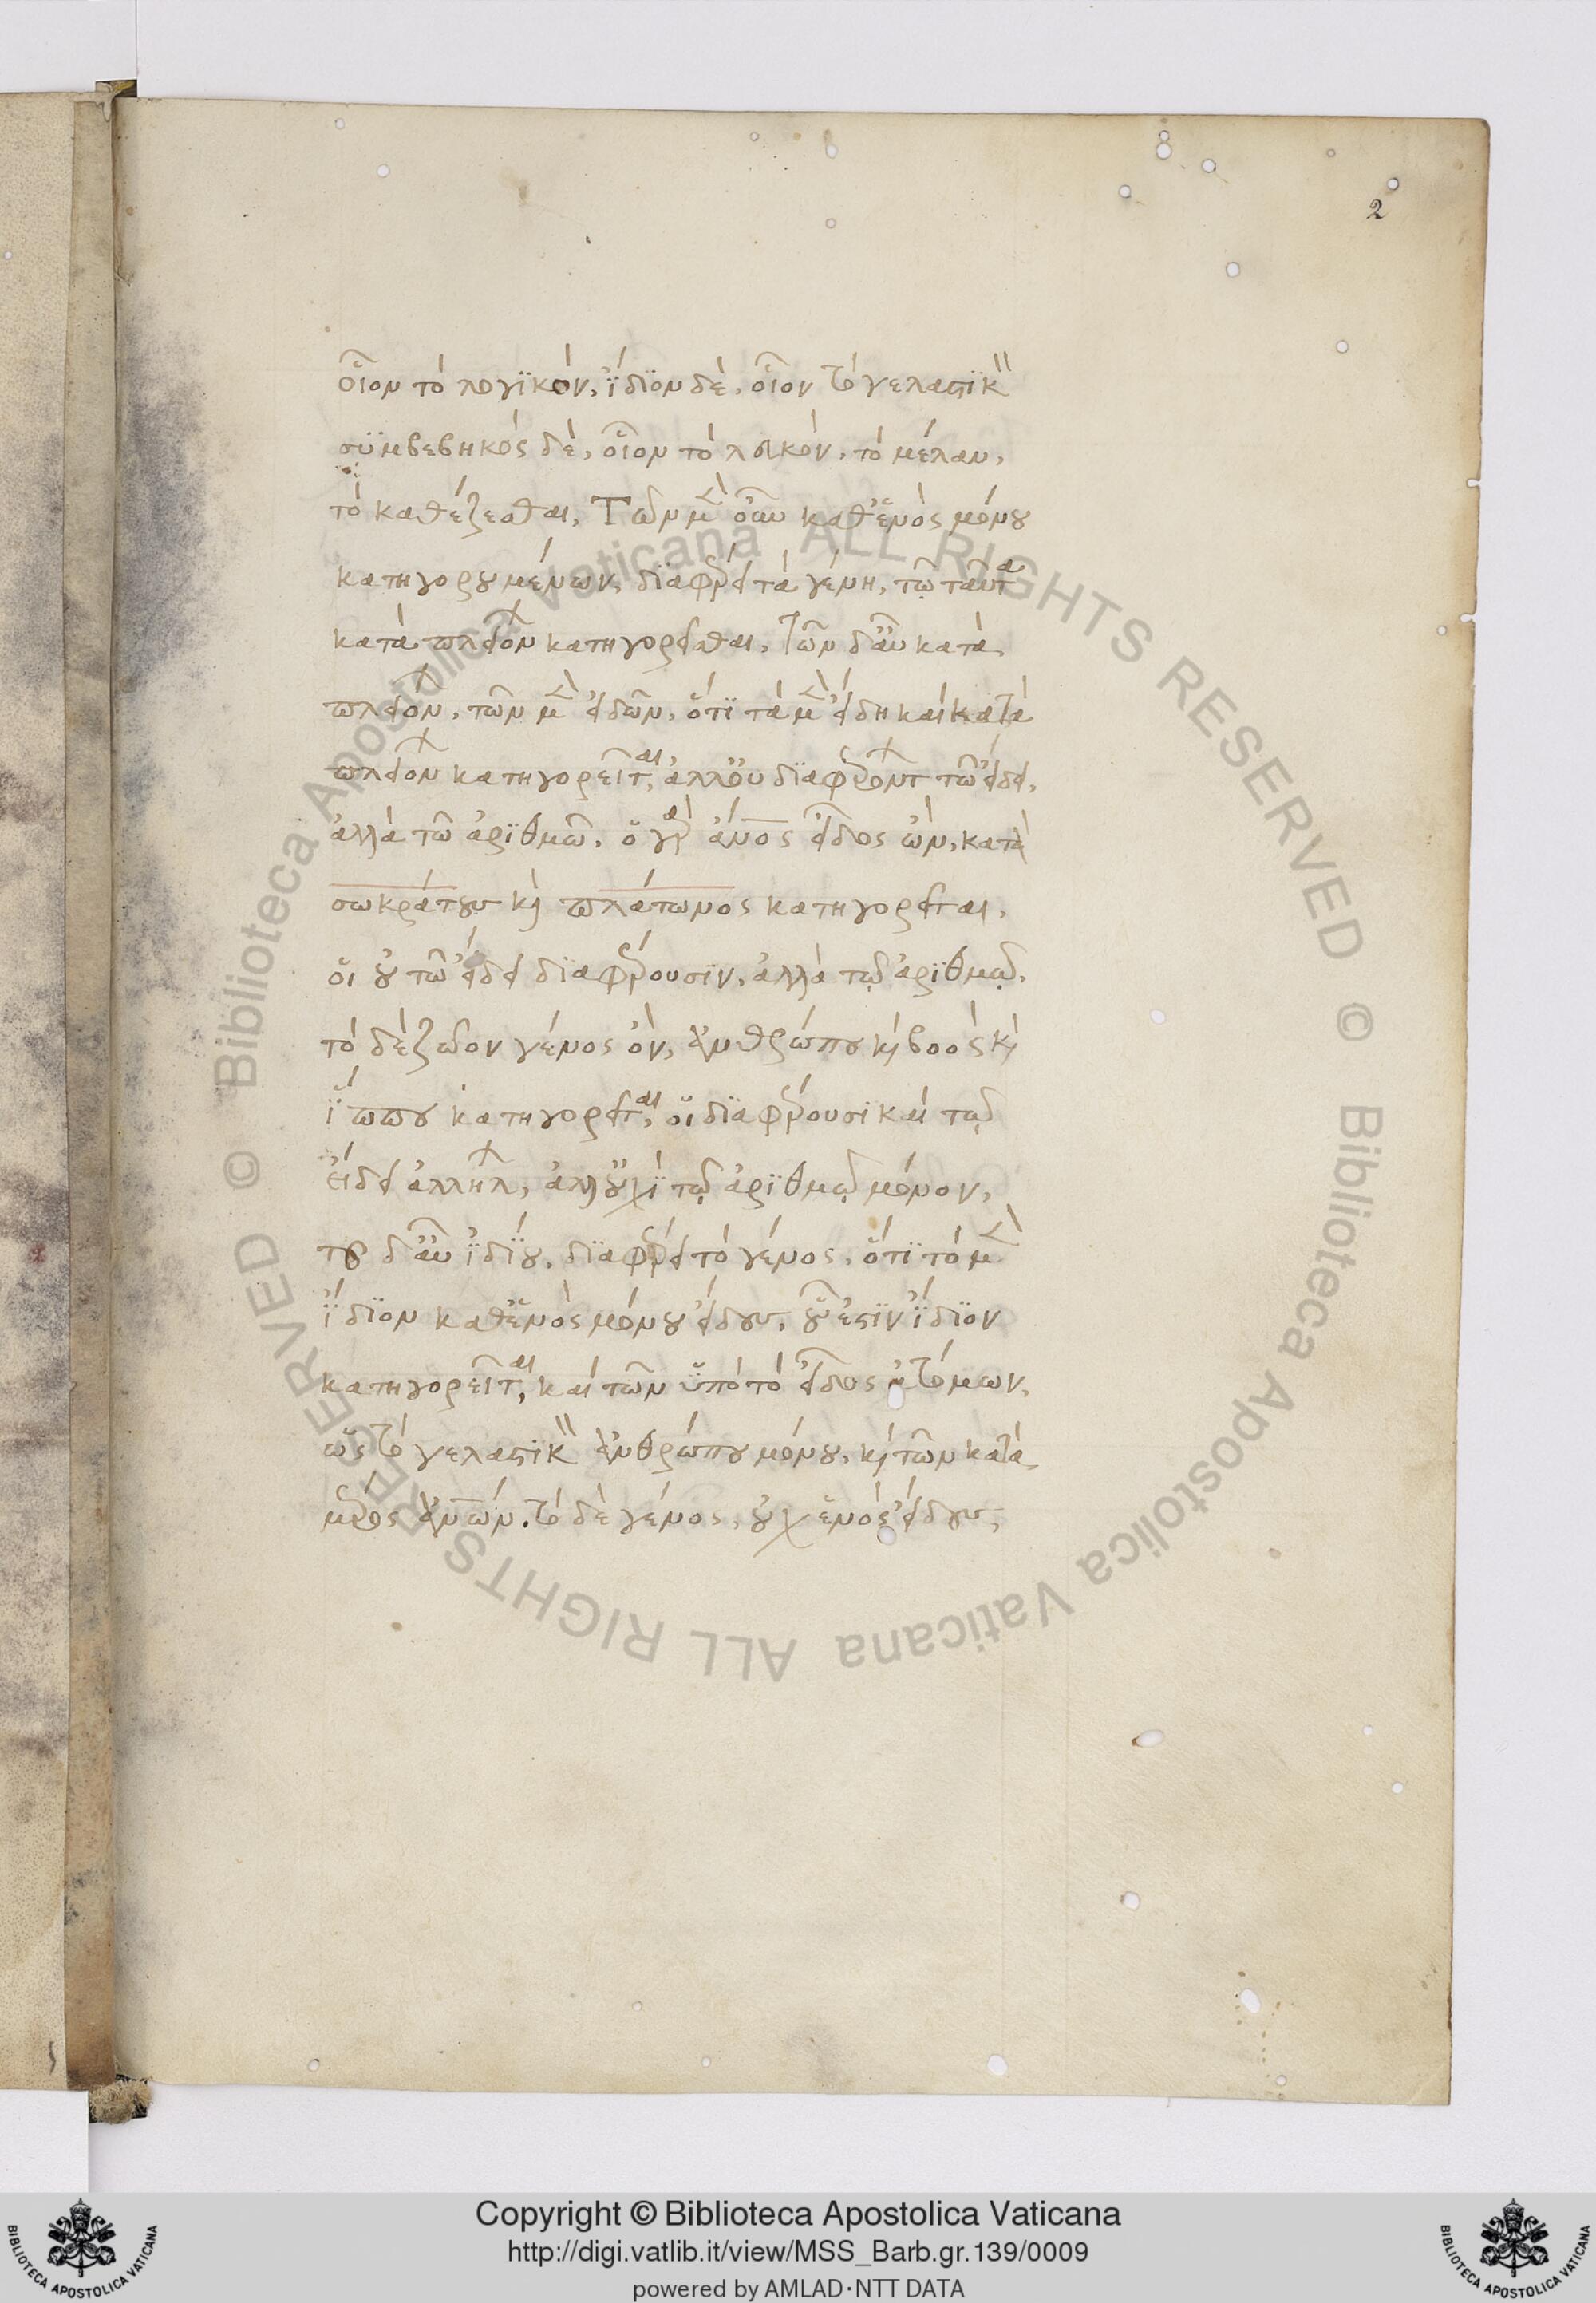 2
οἷον τὸ λογϊκόν, ἴδϊον δὲ, οἷον τὸ γελαστϊκ
συμβεβηκὸς δὲ, οἷον τὸ λευκὸν, τὸ μέλαν,
τὸ καθέζεσθαι, Τῶν μ οὖν καθενὸς μόνου
κατηγορουμένων, διαφέρει τὰ γένη, τῷ ταῦτα
κατὰ πλειόν κατηγορεῖσθαι, Τῶν δ' αὖ κατὰ
πλειόν, τῶν μ εἰδῶν, ὅτϊ τὰ μ εἴδη καὶ κατὰ
πλειόν κατηγορεῖται, ἀλλ' οὐ διαφερόντ τῷ εἴδει,
ἀλλὰ τῷ ἀρϊθμῷ, ὁ γὰρ ἄνος εἶδος ὢν, κατὰ
σωκράτους κ πλάτωνος κατηγορεῖται,
οἳ οὐ τῷ εἴδει διαφέρουσϊν, ἀλλὰ τῷ ἀρϊθμῷ,
τὸ δὲ ζῷον γένος ὂν, ἀνθρώπου κ βοὸς κ
ἵππου κατηγορεῖται, οἳ διαφέρουσι καὶ τῷ
εἴδει ἀλλήλ, ἀλλ' οὐχϊ τῷ ἀρϊθμῷ μόνον,
τοῦ δ' αὖ ἰδίου, διαφέρει τὸ γένος, ὅτϊ τὸ μ
ἴδϊον καθενὸς μόνου εἴδους, οὗ ἐστϊν ἴδϊον
κατηγορεῖται, καὶ τῶν ὑπὸ τὸ εἶδος ἀτόμων,
ὡς τὸ γελαστϊκ ἀνθρώπου μόνου, κ τῶν κατὰ
μέρος ἀνων. τὸ δὲ γένος, οὐχ ἑνὸς εἴδους,
Copyright © Biblioteca Apostolica Vaticana
http://digi.vatlib.it/view/MSS_Barb.gr.139/0009
powered by AMLAD·NTT DATA
BIBLIOTECA APOSTOLICA VATICANA
BIBLIOTECA APOSTOLICA VATICANA
© Biblioteca Apostolica Vaticana ALL RIGHTS RESERVED
© Biblioteca Apostolica Vaticana ALL RIGHTS RESERVED